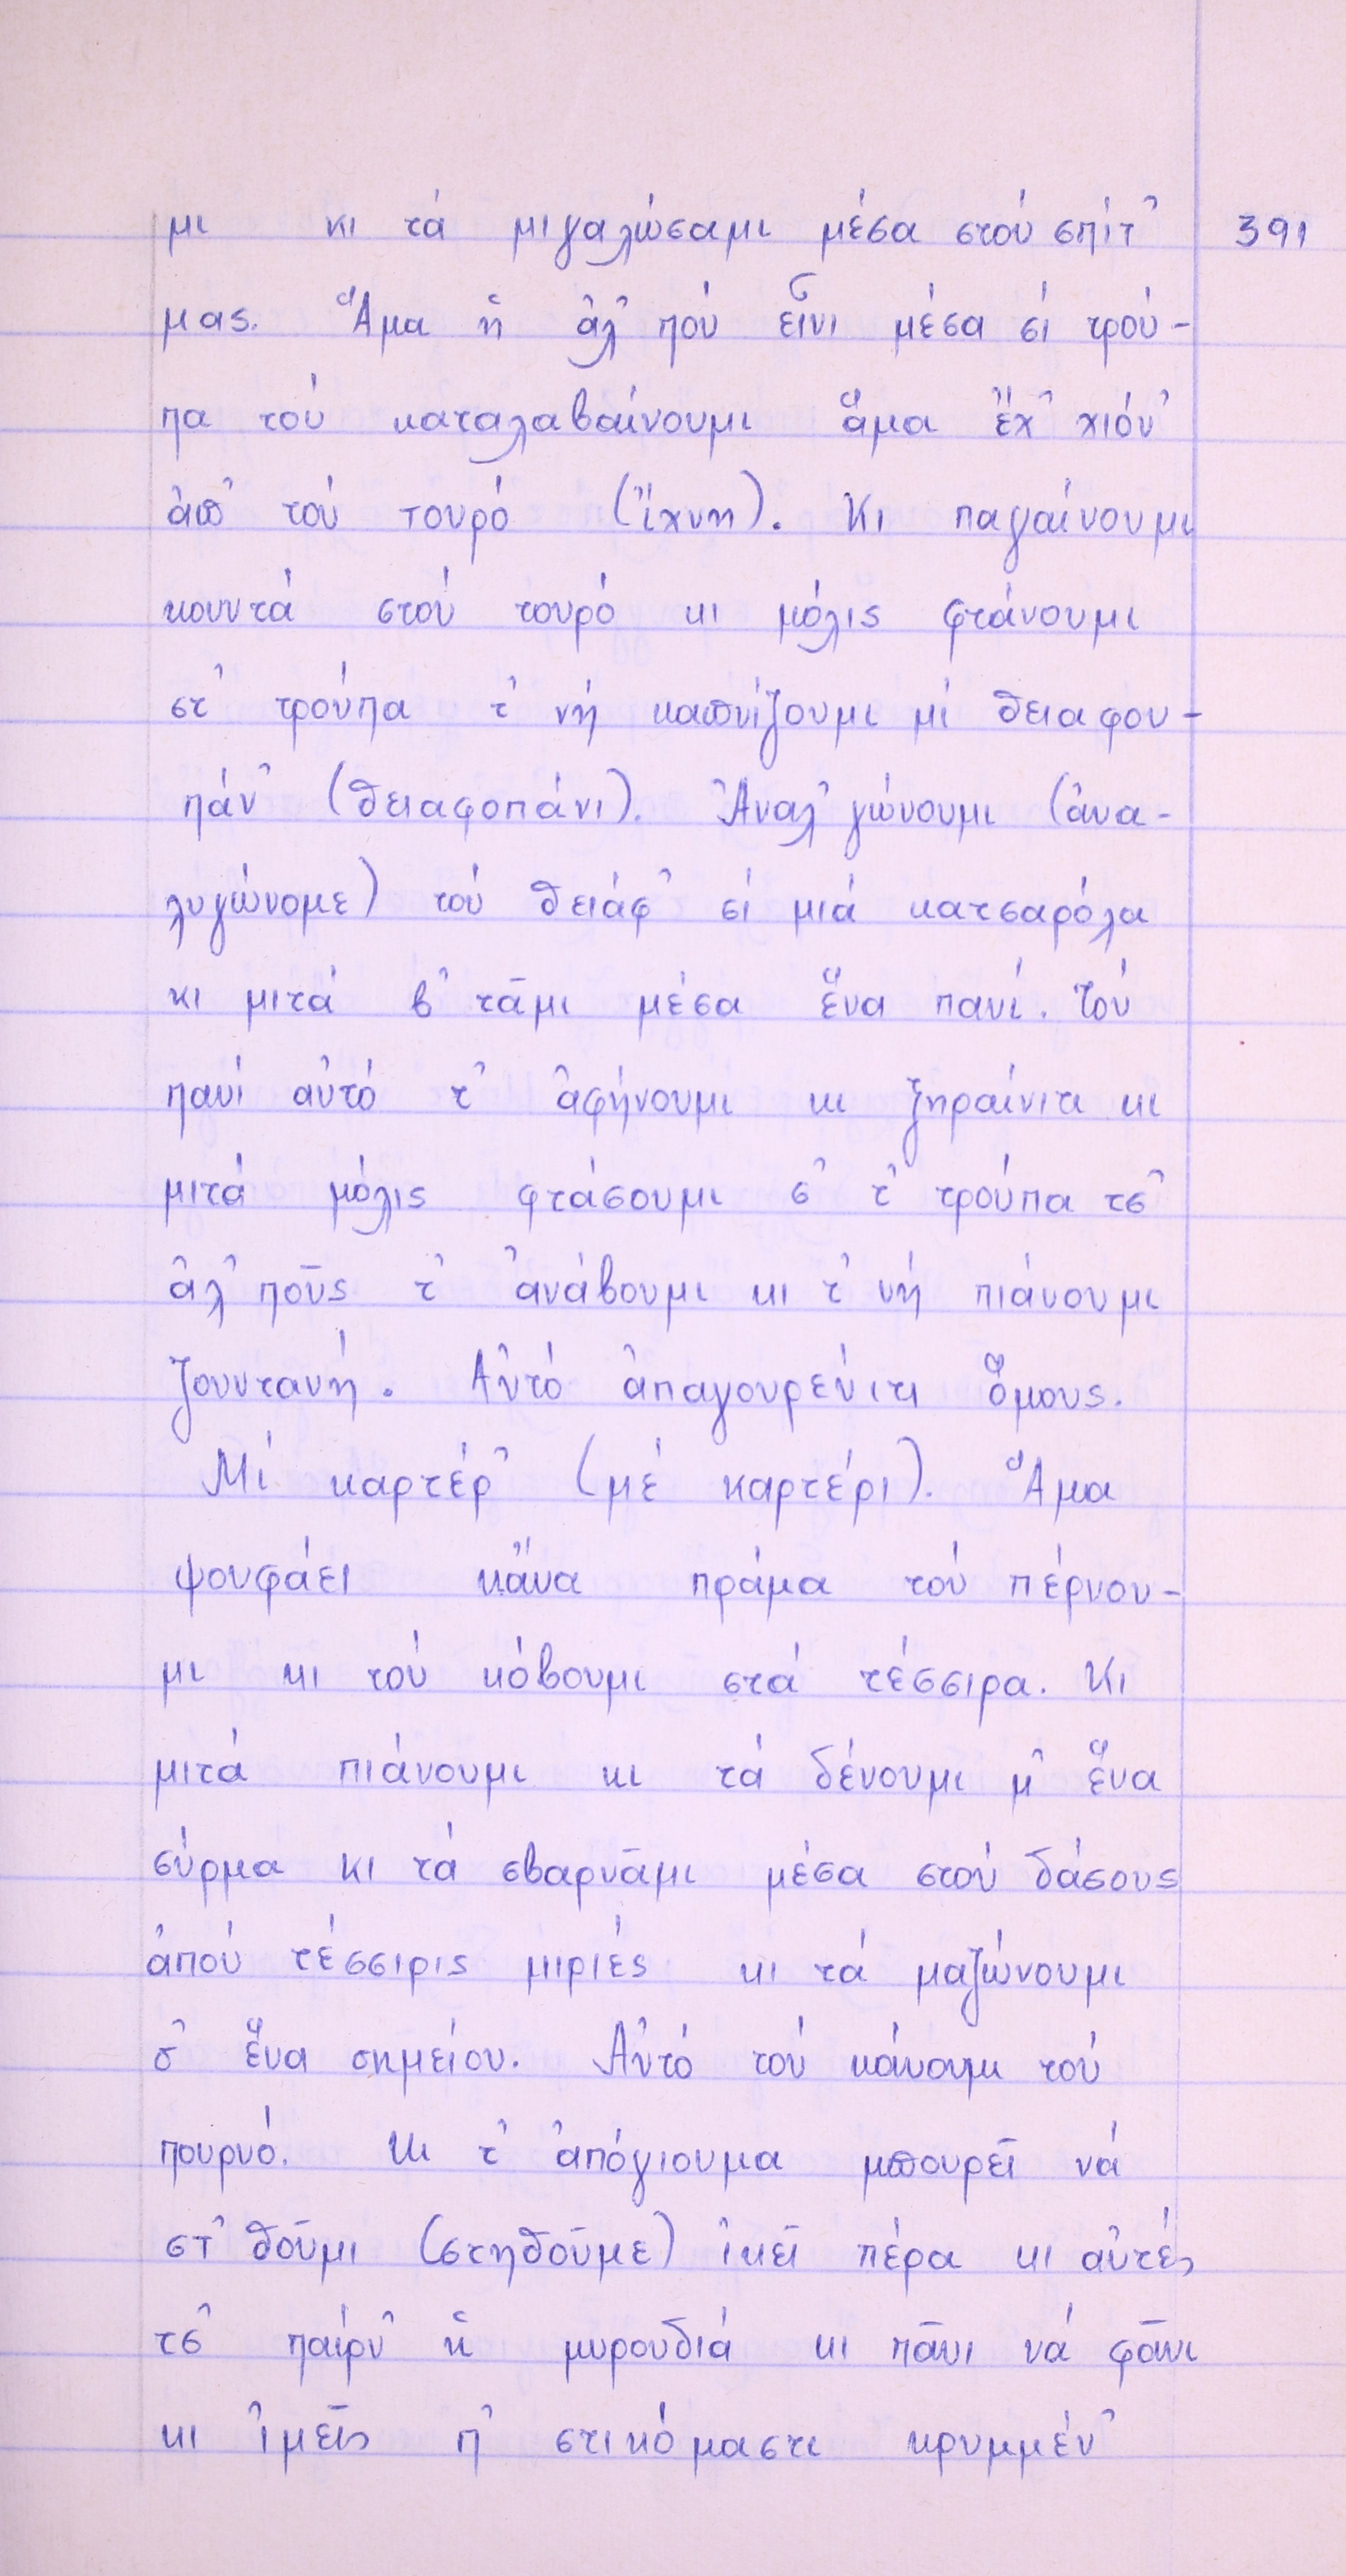 μι κι τά μιγαλώσαμι μέσα στού σπίτ᾿ 391
μας. Ἅμα ἡ ἀλ᾿πού εἶνι μέσα σί τρού-
πα τού καταλαβαίνουμι ἅμα ἔχ᾿ χιόν᾿
ἀπ᾿ τού τουρό (ἴχνη). Κι παγαίνουμι
κουντά στού τουρό κι μόλις φτάνουμι
στ᾿ τρούπα τ᾿ νή καπνίζουμι μί θειαφου-
πάν᾿ (θειαφοπάνι). Ἀναλ᾿γώνουμι (ἀνα-
λυγώνομε) τού θειάφ᾿ σί μιά κατσαρόλα
κι μιτά β᾿τᾶμι μέσα ἕνα πανί. Τού
πανί αὐτό τ᾿ ἀφήνουμι κι ξηραίνιτι κι
μιτά μόλις φτάσουμι σ᾿ τ᾿ τρούπα τσ᾿
ἀλ᾿ποῦς τ᾿ ἀνάβουμι κι τ᾿ νή πιάνουμι
ζουντανή. Αὐτό ἀπαγουρεύιτι ὅμους.
Μί καρτέρ᾿ (μέ καρτέρι). Ἅμα
ψουφάει κἄνα πράμα τού πέρνου-
μι κι τού κόβουμι στά τέσσιρα. Κι
μιτά πιάνουμι κι τά δένουμι μ᾿ ἕνα
σύρμα κι τά σβαρνᾶμι μέσα στού δάσους
ἀπού τέσσιρις μιριές κι τά μαζώνουμι
σ᾿ ἕνα σημείου. Αὐτό τού κάνουμι τού
πουρνό. Κι τ᾿ ἀπόγιουμα μπουρεῖ νά
στ᾿θοῦμι (στηθοῦμε) ἰκεῖ πέρα κι αὐτές
τσ᾿ παίρν᾿ ἡ μυρουδιά κι πᾶνι νά φᾶνι
κι ἰμεῖς π᾿ στικόμαστι κρυμμέν᾿